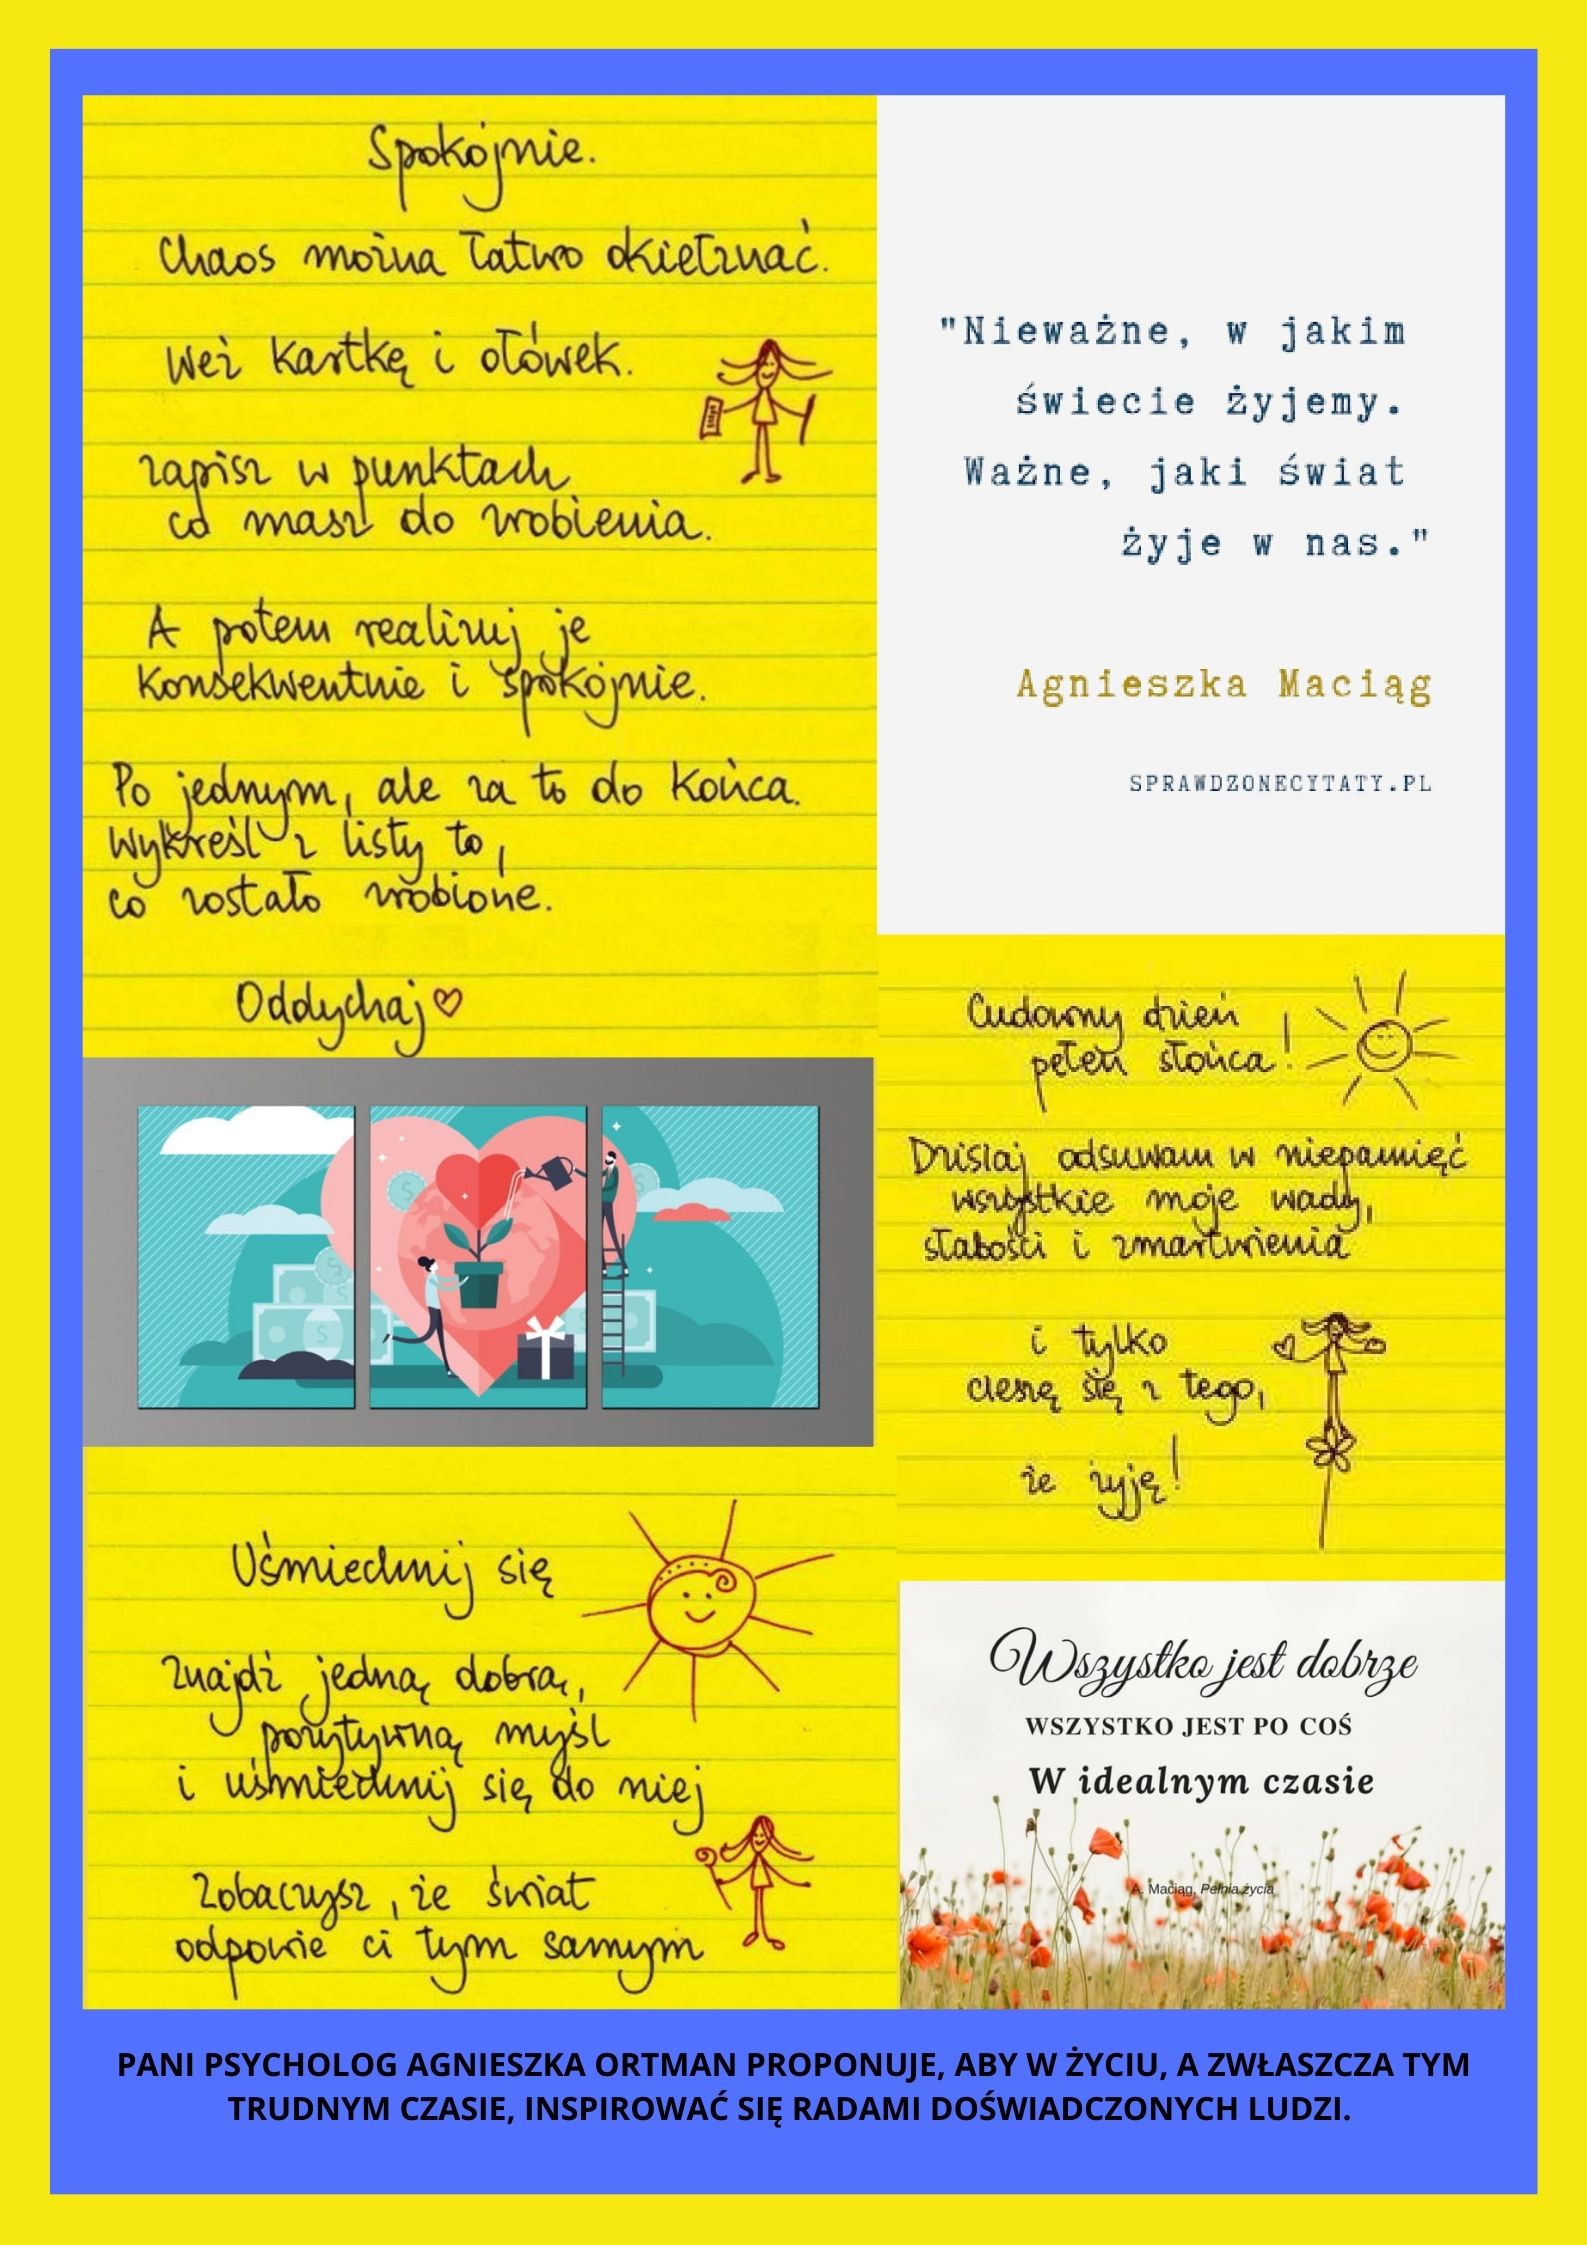 Spokojnie.
Chaos można łatwo okiełznać.
Weź kartkę i ołówek.
Zapisz w punktach
co masz do zrobienia.
A potem realizuj je
konsekwentnie i spokojnie.
Po jednym, ale za to do końca.
Wykreśl z listy to,
co zostało zrobione.
Oddychaj
"Nieważne, w jakim
świecie żyjemy.
Ważne, jaki świat
żyje w nas."
Agnieszka Maciąg
SPRAWDZONECYTATY.PL
Cudowny dzień
pełen słońca!
Dzisiaj odsuwam w niepamięć
wszystkie moje wady,
słabości i zmartwienia
i tylko
cieszę się z tego,
że żyję!
Uśmiechnij się
Znajdź jedną dobrą,
pozytywną myśl
i uśmiechnij się do niej
Zobaczysz, że świat
odpowie ci tym samym
Wszystko jest dobrze
WSZYSTKO JEST PO COŚ
W idealnym czasie
A. Maciąg, Pełnia życia
PANI PSYCHOLOG AGNIESZKA ORTMAN PROPONUJE, ABY W ŻYCIU, A ZWŁASZCZA TYM
TRUDNYM CZASIE, INSPIROWAĆ SIĘ RADAMI DOŚWIADCZONYCH LUDZI.